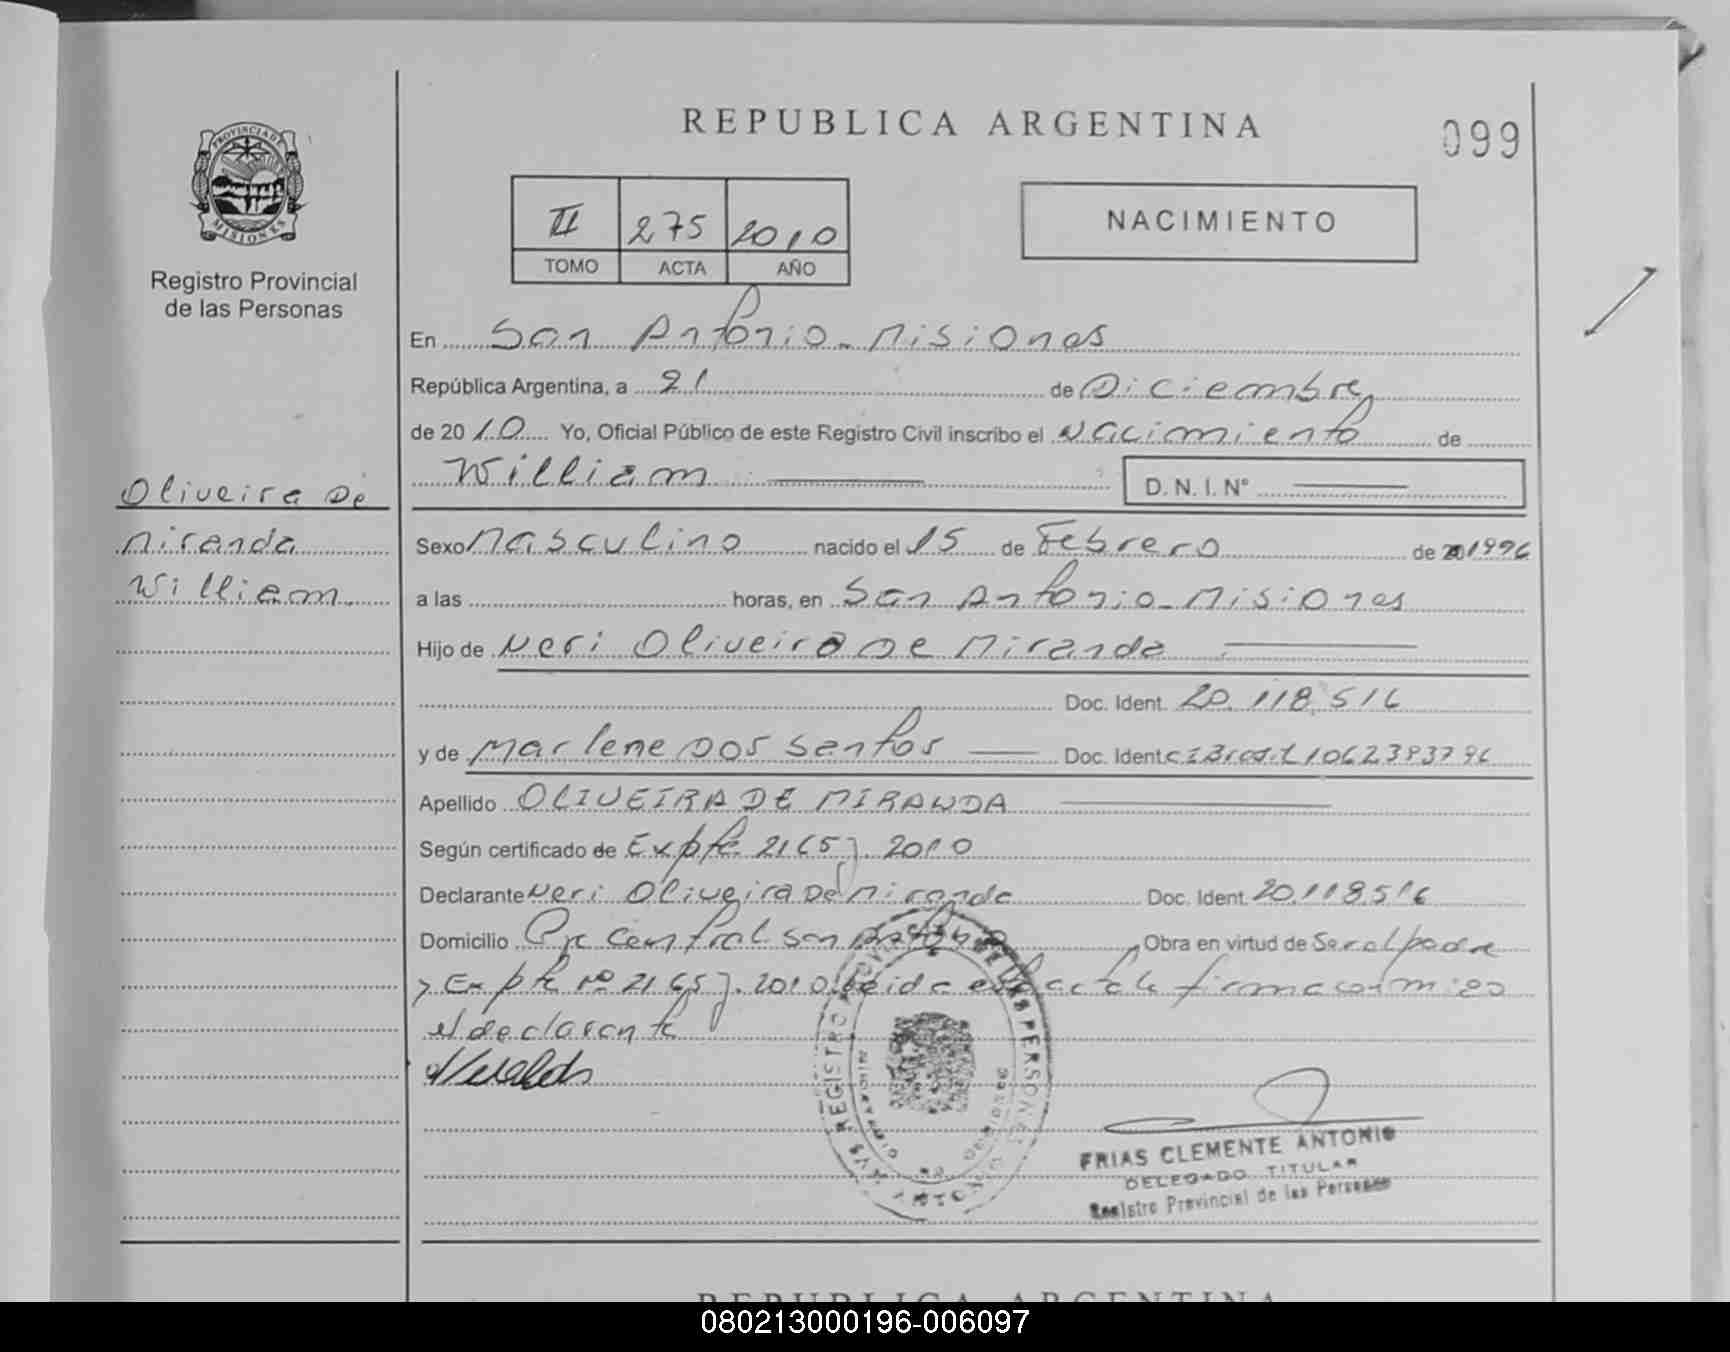 REPUBLICA ARGENTINA
099
PROVINCIA DE
MISIONES
Registro Provincial
de las Personas
II 275 2010
TOMO ACTA AÑO
NACIMIENTO
En San Antonio - Misiones
República Argentina, a 21 de Diciembre
de 2010 Yo, Oficial Público de este Registro Civil inscribo el Nacimiento de
William D. N. I. N°
Oliveira De
Miranda
William
Sexo Masculino nacido el 15 de Febrero de 20 1996
a las horas, en San Antonio - Misiones
Hijo de Neri Oliveira De Miranda
Doc. Ident. 20.118.516
y de Marlene Dos Santos Doc. Ident. CI Brasil 1062393796
Apellido OLIVEIRA DE MIRANDA
Según certificado de Expte. 2165 2010
Declarante Neri Oliveira De Miranda Doc. Ident. 20.118.516
Domicilio Central San Antonio Obra en virtud de
y Expte Nº 2165 2010. Leida el acta la firma conmigo
el declarante
REGISTRO PROVINCIAL DE LAS PERSONAS
FRIAS CLEMENTE ANTONIO
DELEGADO TITULAR
Registro Provincial de las Personas
REPUBLICA ARGENTINA
080213000196-006097